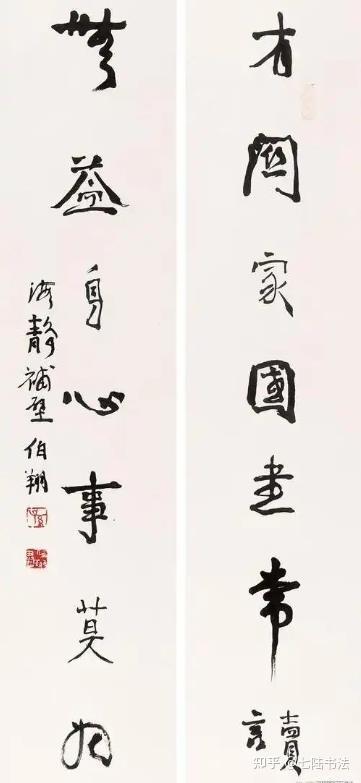 有關家國書常讀
無益身心事莫為
海靜補壁 伯翔
知乎 @七陆书法